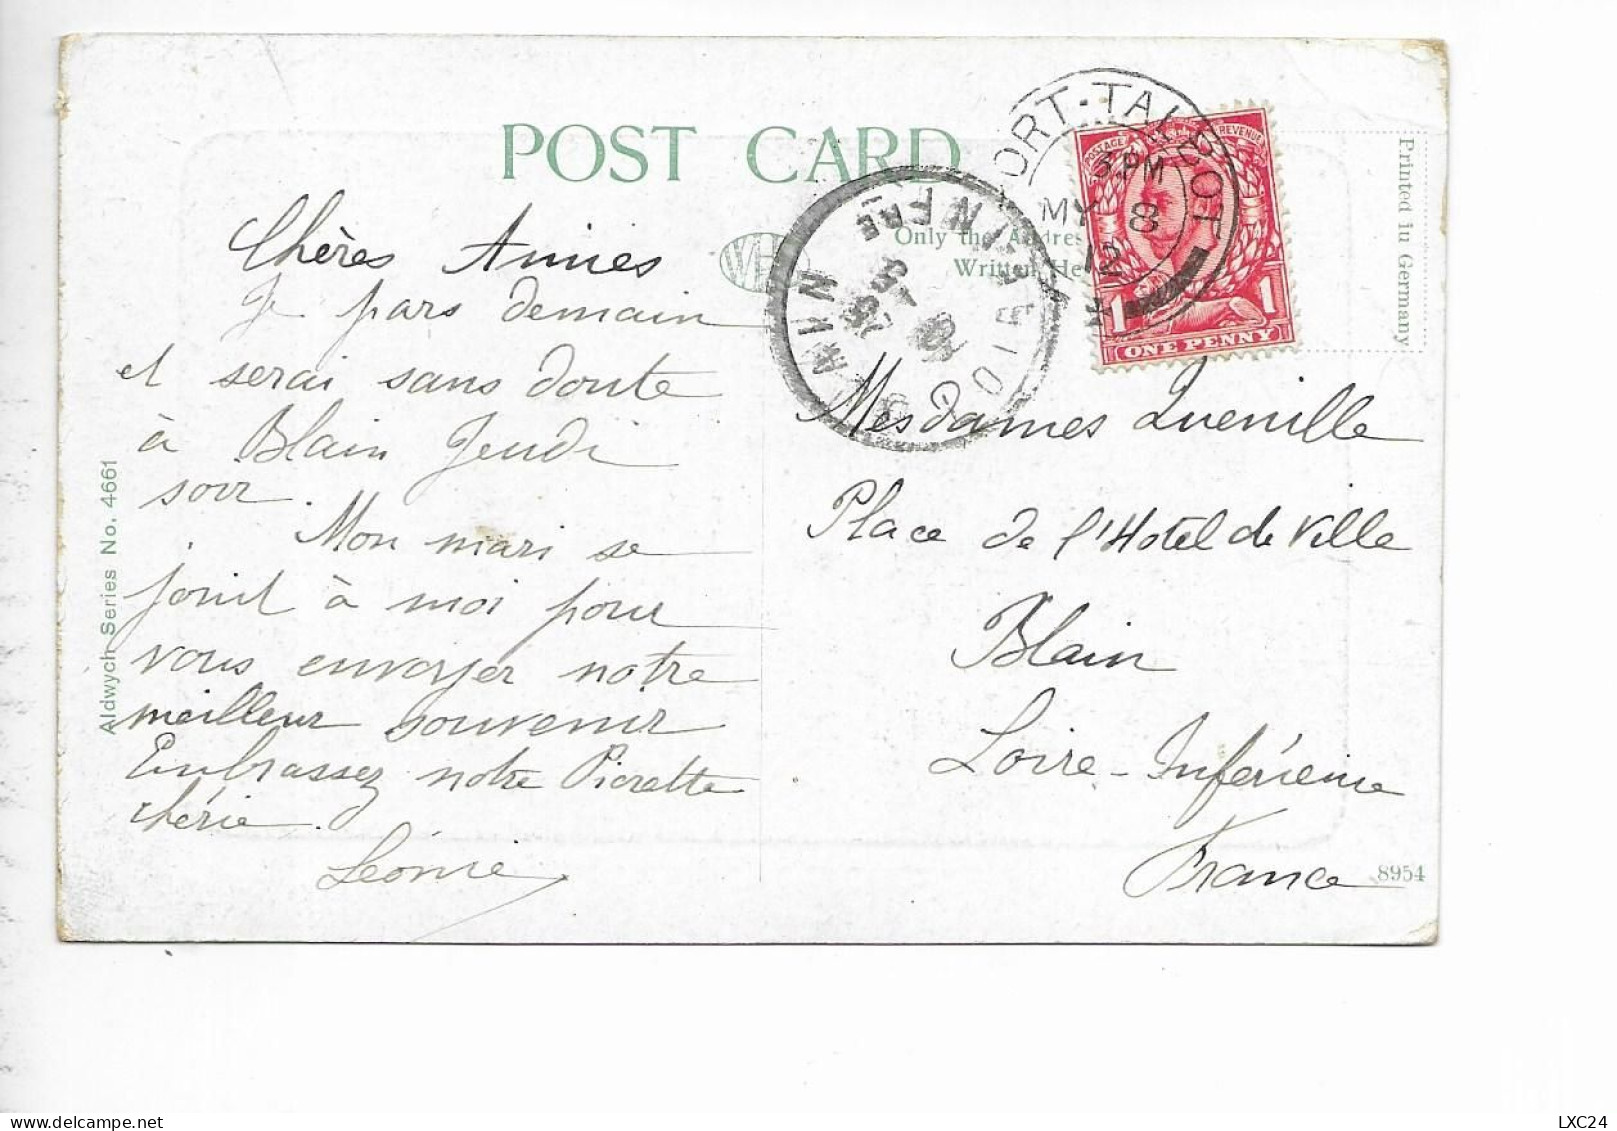 POST CARD
Only the Address
Written He
Printed in Germany
Aldwych Series No. 4661
8954
PORT-TALBOT
3 PM
MY 8
12
POSTAGE REVENUE
1 1
ONE PENNY
BLAIN
LOIRE INFRE
10 - 5
Chères Amies
Je pars demain
et serai sans doute
à Blain Jeudi
soir.
Mon mari se
joint à moi pour
vous envoyer notre
meilleur souvenir
Embrassez notre Pierette
chérie.
Léonie
Mesdames Quenille
Place de l'Hotel de Ville
Blain
Loire-Inférieure
France
LXC24